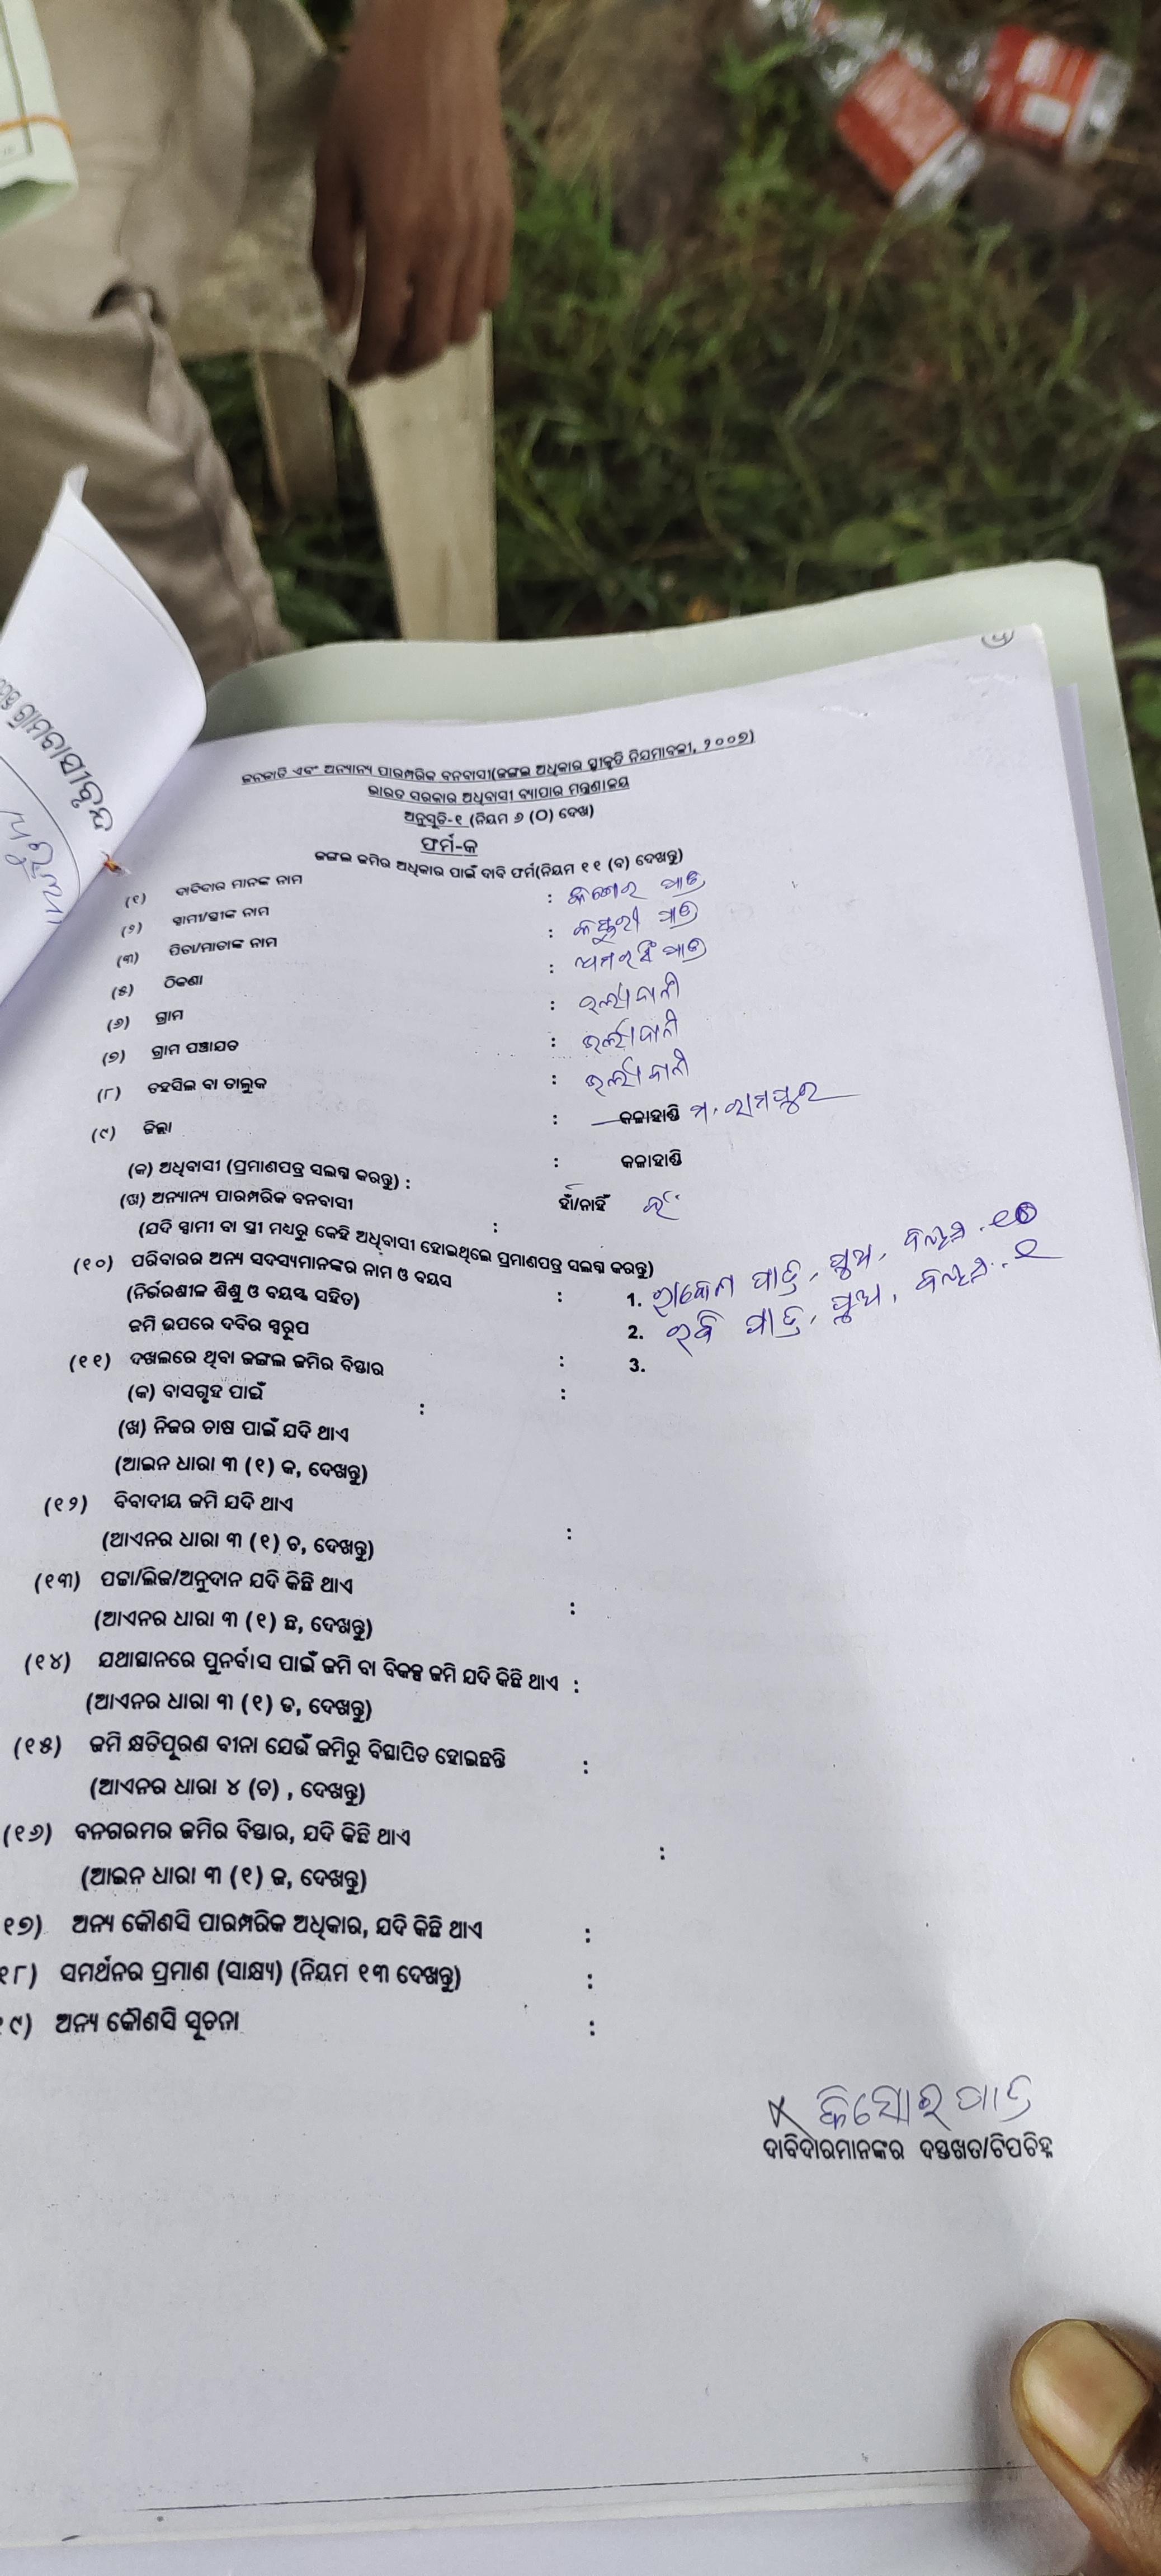 ଗ୍ରାମବାସୀବୃନ୍ଦ
ଜନଜାତି ଏବଂ ଅନ୍ୟାନ୍ୟ ପାରମ୍ପରିକ ବନବାସୀ(ଜଙ୍ଗଲ ଅଧିକାର ସ୍ୱୀକୃତି ନିୟମାବଳୀ, ୨୦୦୭)
ଭାରତ ସରକାର ଅଧିବାସୀ ବ୍ୟାପାର ମନ୍ତ୍ରଣାଳୟ
ଅନୁସୂଚି-୧ (ନିୟମ ୬ (ଠ) ଦେଖ)
ଫର୍ମ-କ
ଜଙ୍ଗଲ ଜମିର ଅଧିକାର ପାଇଁ ଦାବି ଫର୍ମ(ନିୟମ ୧୧ (ବ) ଦେଖନ୍ତୁ)
(୧) ଦାବିଦାର ମାନଙ୍କ ନାମ : କିଶୋର ପାତ୍ର
(୨) ସ୍ୱାମୀ/ସ୍ତ୍ରୀଙ୍କ ନାମ : କସ୍ତୁରୀ ପାତ୍ର
(୩) ପିତା/ମାତାଙ୍କ ନାମ : ପାତ୍ର
(୫) ଠିକଣା :
(୬) ଗ୍ରାମ :
(୭) ଗ୍ରାମ ପଞ୍ଚାୟତ :
(୮) ତହସିଲ ବା ତାଲୁକ : କଳାହାଣ୍ଡି ମ. ରାମପୁର
(୯) ଜିଲ୍ଲା : କଳାହାଣ୍ଡି
(କ) ଅଧିବାସୀ (ପ୍ରମାଣପତ୍ର ସଲଗ୍ନ କରନ୍ତୁ) : ହଁ/ନାହିଁ ହଁ
(ଖ) ଅନ୍ୟାନ୍ୟ ପାରମ୍ପରିକ ବନବାସୀ :
(ଯଦି ସ୍ୱାମୀ ବା ସ୍ତ୍ରୀ ମଧ୍ୟରୁ କେହି ଅଧିବାସୀ ହୋଇଥିଲେ ପ୍ରମାଣପତ୍ର ସଲଗ୍ନ କରନ୍ତୁ)
(୧୦) ପରିବାରର ଅନ୍ୟ ସଦସ୍ୟମାନଙ୍କର ନାମ ଓ ବୟସ : 1. ରାକେଶ ପାତ୍ର, ପୁଅ, ବୟସ. ୧୦
(ନିର୍ଭରଶୀଳ ଶିଶୁ ଓ ବୟସ୍କ ସହିତ) 2. ରବି ପାତ୍ର, ପୁଅ, ବୟସ.. ୧
ଜମି ଉପରେ ଦବିର ସ୍ୱରୂପ : 3.
(୧୧) ଦଖଲରେ ଥିବା ଜଙ୍ଗଲ ଜମିର ବିସ୍ତାର :
(କ) ବାସଗୃହ ପାଇଁ :
(ଖ) ନିଜର ଚାଷ ପାଇଁ ଯଦି ଥାଏ
(ଆଇନ ଧାରା ୩ (୧) କ, ଦେଖନ୍ତୁ)
(୧୨) ବିବାଦୀୟ ଜମି ଯଦି ଥାଏ :
(ଆଏନର ଧାରା ୩ (୧) ଚ, ଦେଖନ୍ତୁ)
(୧୩) ପଟ୍ଟା/ଲିଜ/ଅନୁଦାନ ଯଦି କିଛି ଥାଏ :
(ଆଏନର ଧାରା ୩ (୧) ଛ, ଦେଖନ୍ତୁ)
(୧୪) ଯଥାସ୍ଥାନରେ ପୁନର୍ବାସ ପାଇଁ ଜମି ବା ବିକଳ୍ପ ଜମି ଯଦି କିଛି ଥାଏ :
(ଆଏନର ଧାରା ୩ (୧) ଡ, ଦେଖନ୍ତୁ)
(୧୫) ଜମି କ୍ଷତିପୂରଣ ବୀନା ଯେଉଁ ଜମିରୁ ବିସ୍ଥାପିତ ହୋଇଛନ୍ତି :
(ଆଏନର ଧାରା ୪ (ଚ) , ଦେଖନ୍ତୁ)
(୧୬) ବନଗରମର ଜମିର ବିସ୍ତାର, ଯଦି କିଛି ଥାଏ :
(ଆଇନ ଧାରା ୩ (୧) ଜ, ଦେଖନ୍ତୁ)
୧୭) ଅନ୍ୟ କୌଣସି ପାରମ୍ପରିକ ଅଧିକାର, ଯଦି କିଛି ଥାଏ :
୧୮) ସମର୍ଥନର ପ୍ରମାଣ (ସାକ୍ଷ୍ୟ) (ନିୟମ ୧୩ ଦେଖନ୍ତୁ) :
୧୯) ଅନ୍ୟ କୌଣସି ସୂଚନା :
କିଶୋର ପାତ୍ର
ଦାବିଦାରମାନଙ୍କର ଦସ୍ତଖତ/ଟିପଚିହ୍ନ